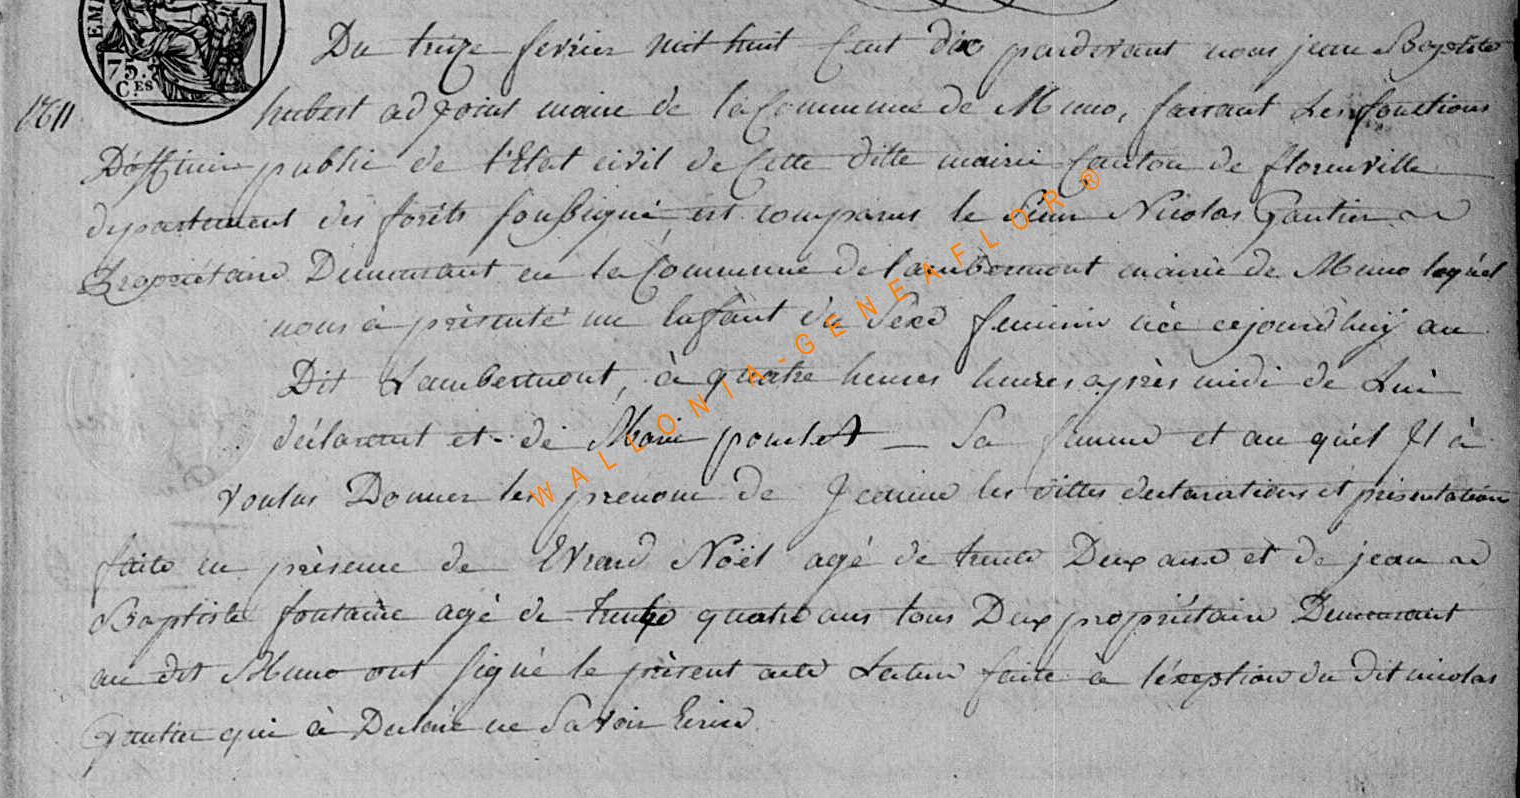 EM
75.
C.ES
Du treize fevrier mil huit Cent dix pardevant nous jean Baptiste
hubert adjoint maire de la Commune de Muno, faisant Les fonctions
D'officier public de l'Etat civil de Cette ditte mairie Canton de florenville
departement des forêts soubsigné, est comparus le Sieur Nicolas Gautier
Propriétaire Demeurant en la Commune de lambermont mairie de Muno lequel
nous à présenté un Enfant du Sexe feminin née cejourd'huÿ au
Dit Lambermont, à quatre heures heures après midi de Lui
déclarant et de Marie poncelet sa femme et au quel Il à
voulus Donner les prenom de Jeanne les dittes declarations et présentation
faite en présence de Evrard Noël agé de trente Deux ans et de jean
Baptiste fontaine agé de trente quatre ans tous Deux propriétaire Demeurant
au dit Muno ont signé le présent acte Lecture faite à l'éxeption du Dit nicolas
Gautier qui à Declaré ne Savoir Ecrire
WALLONIA-GENEAFLOR®